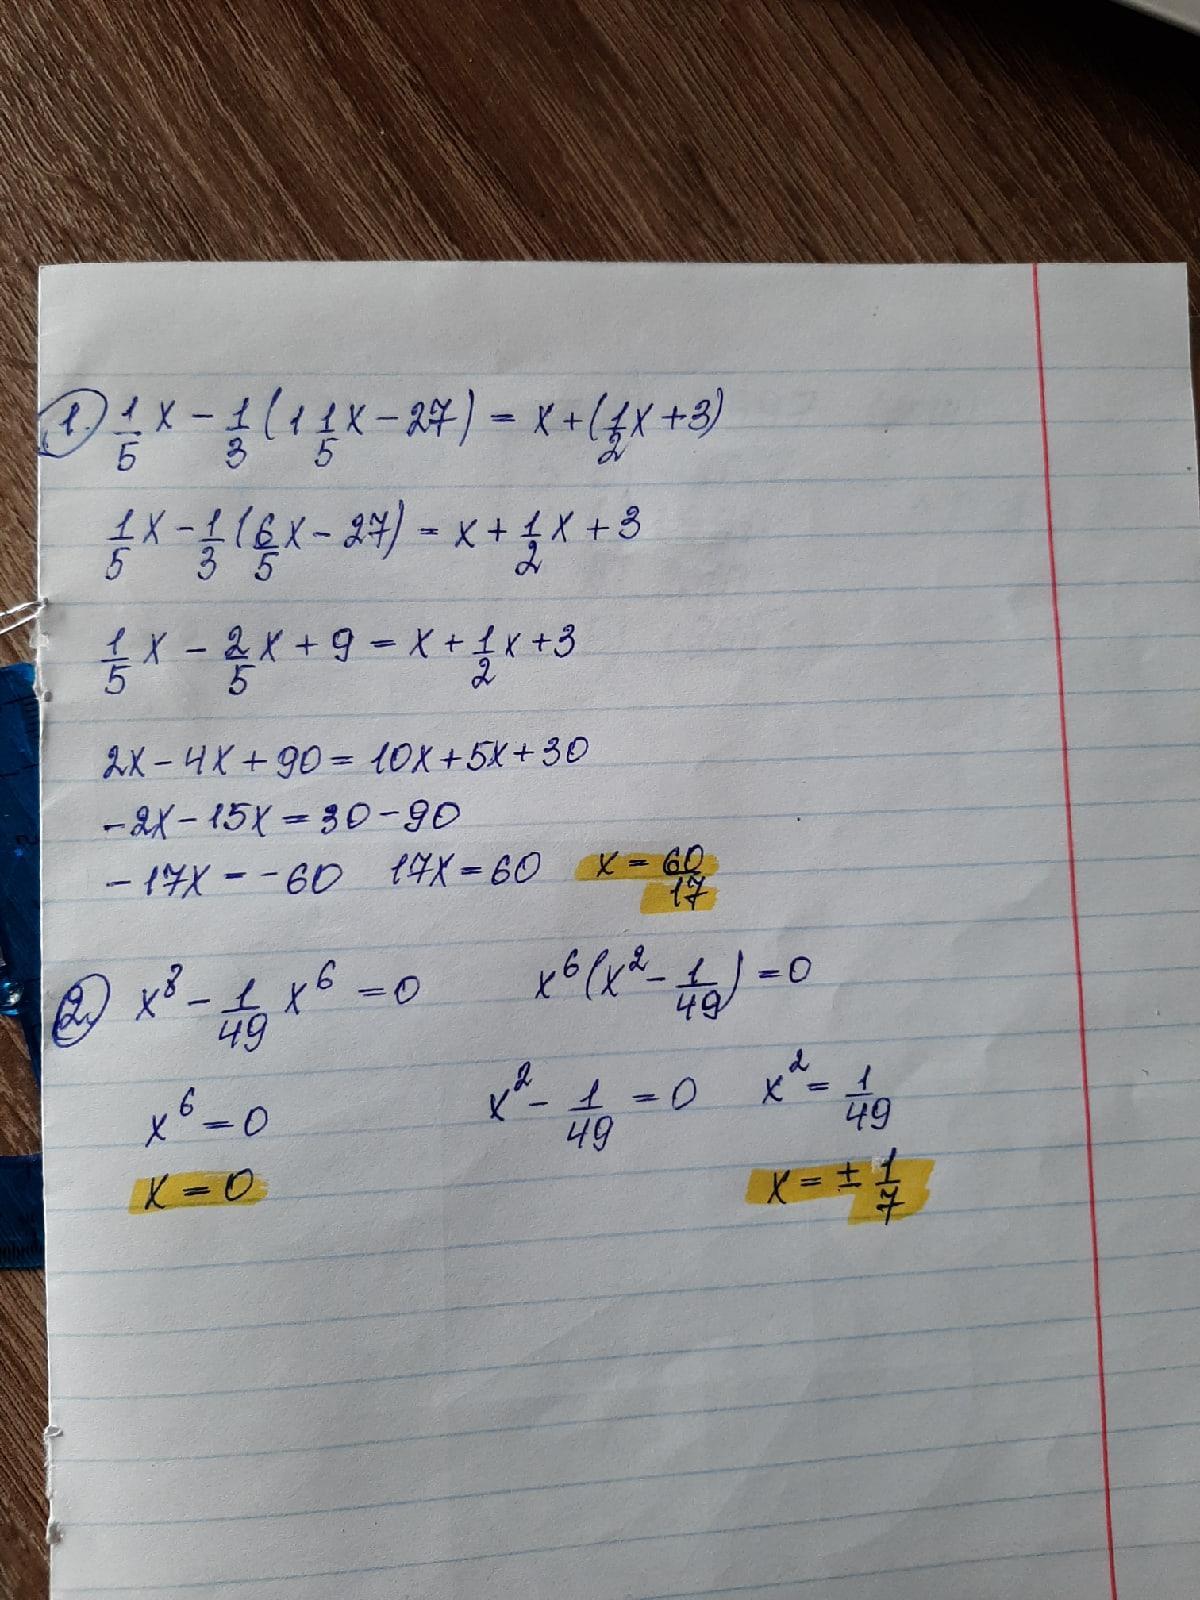 1. 1/5 x - 1/3 (1 1/5 x - 27) = x + (1/2 x + 3)
1/5 x - 1/3 (6/5 x - 27) = x + 1/2 x + 3
1/5 x - 2/5 x + 9 = x + 1/2 x + 3
2x - 4x + 90 = 10x + 5x + 30
-2x - 15x = 30 - 90
-17x = -60 17x = 60 x = 60/17
2. x⁸ - 1/49 x⁶ = 0 x⁶(x² - 1/49) = 0
x⁶ = 0 x² - 1/49 = 0 x² = 1/49
x = 0 x = ± 1/7